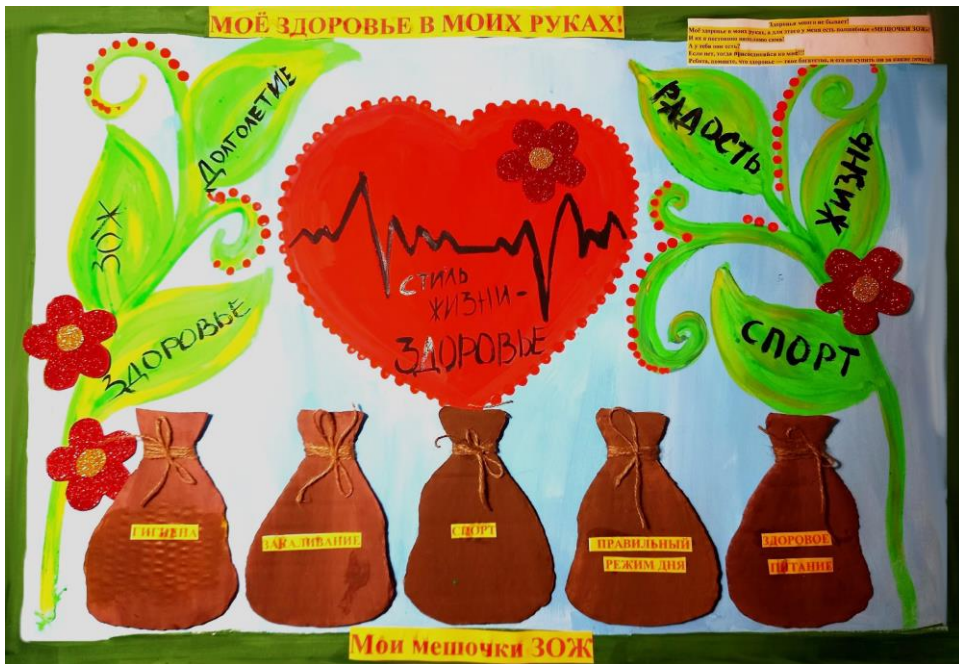 МОЁ ЗДОРОВЬЕ В МОИХ РУКАХ!
Здоровья много не бывает!
Моё здоровье в моих руках, а для этого у меня есть волшебные «МЕШОЧКИ ЗОЖ»
И их я постоянно пополняю сама!
А у тебя они есть?
Если нет, тогда присоединяйся ко мне!!!
Ребята, помните, что здоровье — твое богатство, и его не купить ни за какие деньги
ДОЛГОЛЕТИЕ
ЗОЖ
ЗДОРОВЬЕ
СТИЛЬ
ЖИЗНИ-
ЗДОРОВЬЕ
РАДОСТЬ
ЖИЗНЬ
СПОРТ
ГИГИЕНА
ЗАКАЛИВАНИЕ
СПОРТ
ПРАВИЛЬНЫЙ
РЕЖИМ ДНЯ
ЗДОРОВОЕ
ПИТАНИЕ
Мои мешочки ЗОЖ